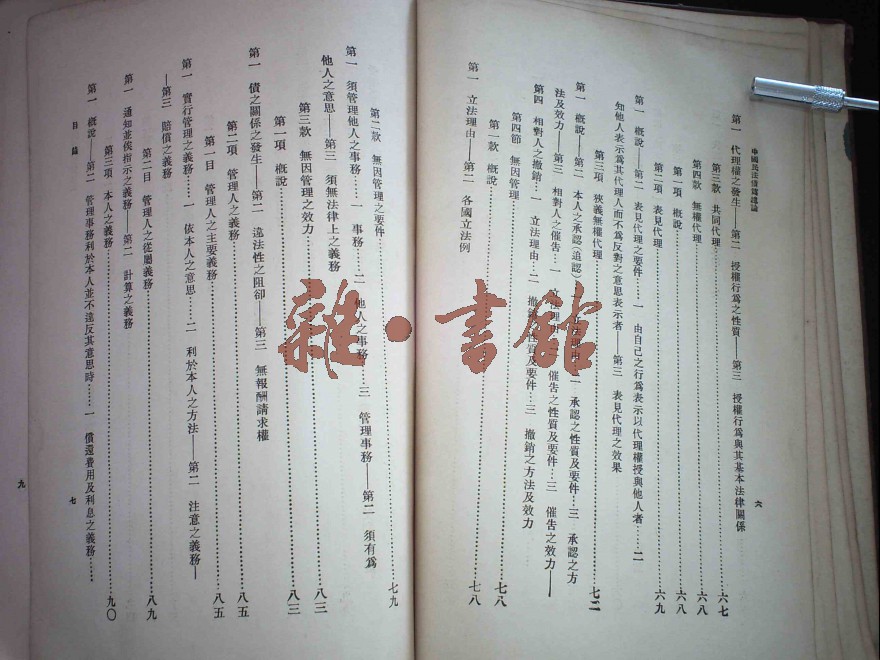 中國民法債篇總論
六
第一 代理權之發生——第二 授權行爲之性質——第三 授權行爲與其基本法律關係
第三款 共同代理……六七
第四款 無權代理……六八
第一項 概說……六八
第二項 表見代理……六九
第一 概說——第二 表見代理之要件……一 由自己之行爲表示以代理權授與他人者……二
知他人表示爲其代理人而不爲反對之意思表示者——第三 表見代理之效果
第三項 狹義無權代理……七二
第一 概說——第二 本人之承認（追認）……一 立法理由……二 承認之性質及要件……三 承認之方
法及效力——第三 相對人之催告……一 立法理由……二 催告之性質及要件……三 催告之效力——
第四 相對人之撤銷……一 立法理由……二 撤銷之性質及要件……三 撤銷之方法及效力
第四節 無因管理……七八
第一款 概說……七八
第一 立法理由——第二 各國立法例
第二款 無因管理之要件……七九
第一 須管理他人之事務……一 事務……二 他人之事務……三 管理事務——第二 須有爲
他人之意思——第三 須無法律上之義務
第三款 無因管理之效力……八三
第一項 概說……八三
第一 債之關係之發生——第二 違法性之阻卻——第三 無報酬請求權
第二項 管理人之義務……八五
第一目 管理人之主要義務……八五
第一 實行管理之義務……一 依本人之意思……二 利於本人之方法——第二 注意之義務—
—第三 賠償之義務
第二目 管理人之從屬義務……八九
第一 通知並俟指示之義務——第二 計算之義務
第三項 本人之義務……九〇
第一 概說——第二 管理事務利於本人並不違反其意思時……一 償還費用及利息之義務……
目錄
七
九
雜·書館